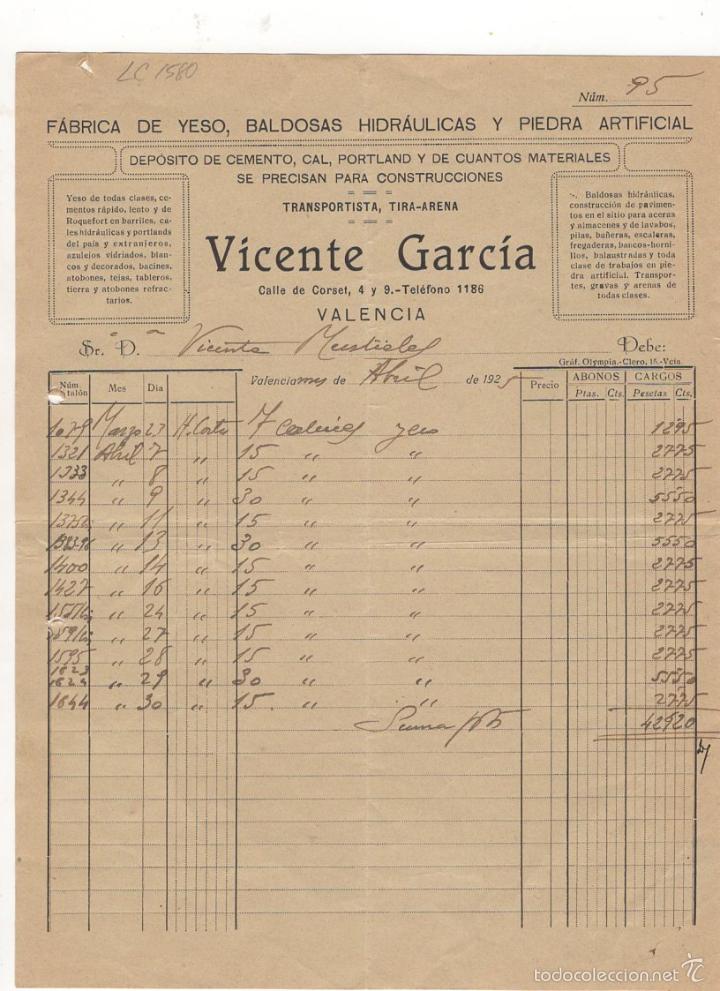 LC 1580
Núm. 95
FÁBRICA DE YESO, BALDOSAS HIDRÁULICAS Y PIEDRA ARTIFICIAL
DEPÓSITO DE CEMENTO, CAL, PORTLAND Y DE CUANTOS MATERIALES
SE PRECISAN PARA CONSTRUCCIONES
TRANSPORTISTA, TIRA-ARENA
Yeso de todas clases, ce-
mentos rápido, lento y de
Roquefort en barriles, ca-
les hidráulicas y portlands
del país y extranjeros,
azulejos vidriados, blan-
cos y decorados, bacines,
atobones, tejas, tableros,
tierra y atobones refrac-
tarios.
Baldosas hidráulicas,
construcción de pavimen-
tos en el sitio para aceras
y almacenes y de lavabos,
pilas, bañeras, escaleras,
fregaderas, bancos-horni-
llos, balaustradas y toda
clase de trabajos en pie-
dra artificial. Transpor-
tes, gravas y arenas de
todas clases.
Vicente García
Calle de Corset, 4 y 9.-Teléfono 1186
VALENCIA
Sr. D. Vicente Debe:
Gráf. Olympia.-Clero, 15.-Vcia.
Núm. talón Mes Día Valencia de Abril de 1925 Precio ABONOS CARGOS
Ptas. Cts. Pesetas Cts.
1079 Marzo 23 H. Corte 7 yeso 1295
1321 Abril 7 " 15 " " 2775
1333 " 8 " 15 " " 2775
1344 " 9 " 30 " " 5550
" 11 " 15 " " 2775
" 13 " 30 " " 5550
1400 " 14 " 15 " " 2775
1427 " 16 " 15 " " 2775
" 24 " 15 " " 2775
" 27 " 15 " " 2775
1595 " 28 " 15 " " 2775
1623
1624 " 29 " 30 " " 5550
1644 " 30 " 15 " " 2775
Suma 42920
todocoleccion.net